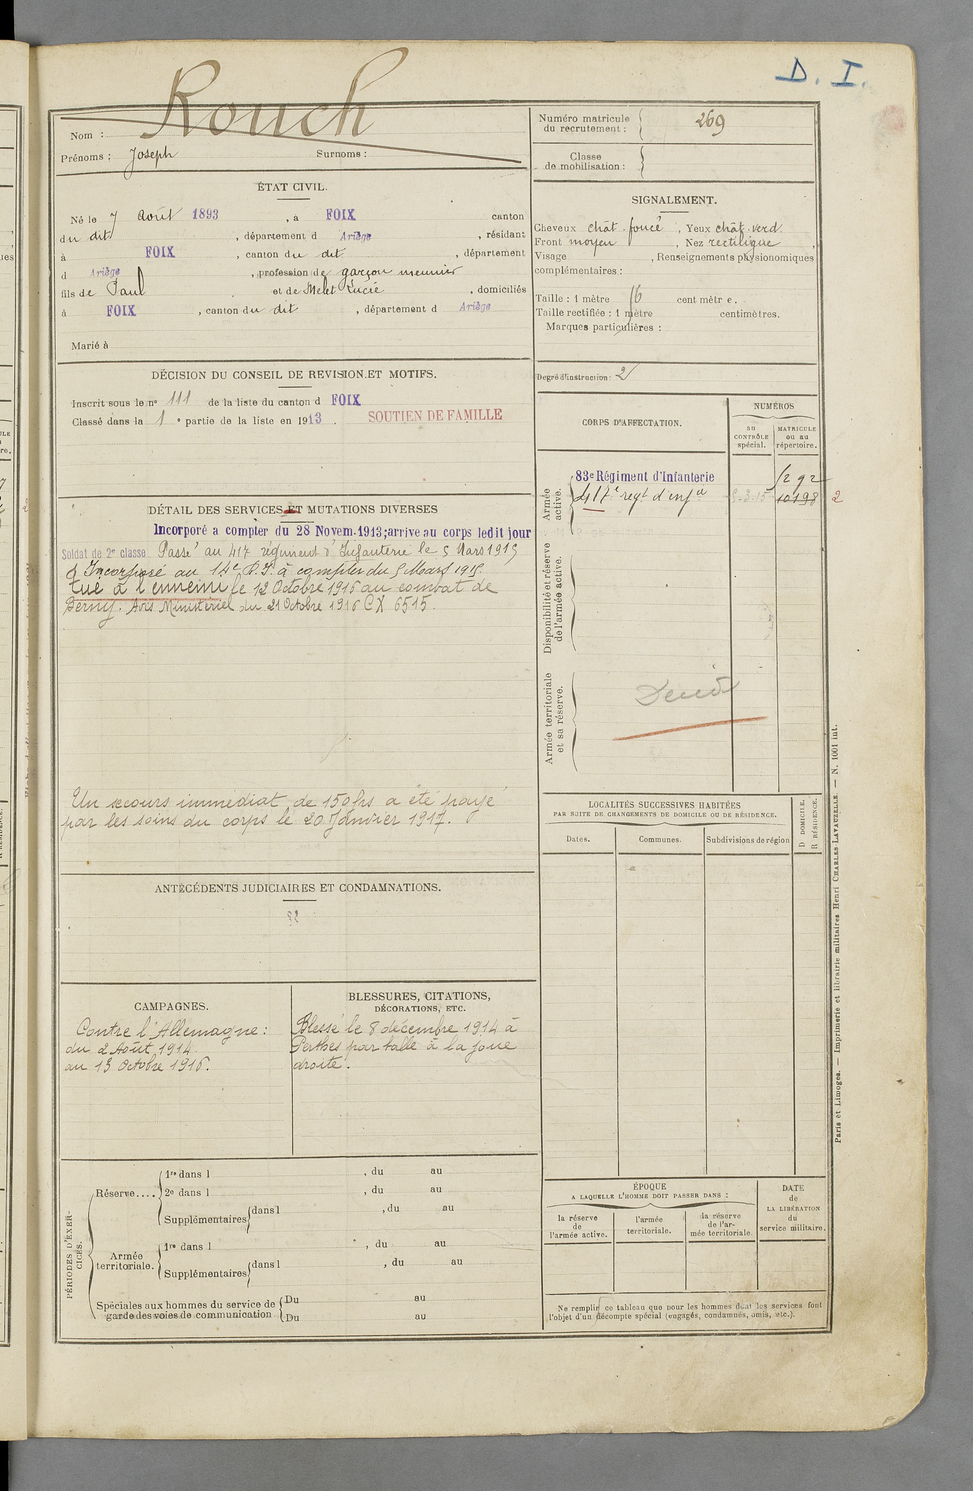 D. I.
Rouch
Nom :
Prénoms : Joseph Surnoms :
Numéro matricule du recrutement : 269
Classe de mobilisation :
ÉTAT CIVIL.
Né le 7 Août 1893, à FOIX canton
du dit, département d Ariège, résidant
à FOIX, canton du dit, département
d Ariège, profession de garçon meunier
fils de Paul et de Melet Lucie, domiciliés
à FOIX, canton du dit, département d Ariège
Marié à
SIGNALEMENT.
Cheveux chât. foncé, Yeux chât. verd.
Front moyen, Nez rectiligne,
Visage , Renseignements physionomiques
complémentaires :
Taille : 1 mètre 16 cent mètr e.
Taille rectifiée : 1 mètre centimètres.
Marques particulières :
Degré d'instruction : 2
DÉCISION DU CONSEIL DE REVISION ET MOTIFS.
Inscrit sous le nº 111 de la liste du canton d FOIX
Classé dans la 1 e partie de la liste en 1913. SOUTIEN DE FAMILLE
CORPS D'AFFECTATION.
NUMÉROS
au CONTRÔLE spécial.
MATRICULE ou au répertoire.
Armée active.
83e Régiment d'Infanterie
417e regt d'infie 10198 2
Disponibilité et réserve de l'armée active.
Armée territoriale et sa réserve.
DÉTAIL DES SERVICES ET MUTATIONS DIVERSES
Incorporé a compter du 28 Novem. 1913; arrive au corps ledit jour
Soldat de 2e classe Passé au 417 régiment d'Infanterie le 5 Mars 1915
Incorporé au 14e R.I. à compter du 5 Mars 1915.
Tué à l'ennemi le 12 Octobre 1916 au combat de
Berny. Avis Ministériel du 21 Octobre 1916 CX 6515.
Un secours immédiat de 150 frs a été payé
par les soins du corps le 20 Janvier 1917.
LOCALITÉS SUCCESSIVES HABITÉES
PAR SUITE DE CHANGEMENTS DE DOMICILE OU DE RÉSIDENCE.
Dates. Communes. Subdivisions de région
D DOMICILE.
R RÉSIDENCE.
ANTÉCÉDENTS JUDICIAIRES ET CONDAMNATIONS.
CAMPAGNES.
Contre l'Allemagne :
du 2 Août 1914
au 13 Octobre 1916.
BLESSURES, CITATIONS,
DÉCORATIONS, ETC.
Blessé le 8 décembre 1914 à
Perthes par balle à la joue
droite.
PÉRIODES D'EXERCICES.
Réserve.... 1re dans l , du au
2e dans l , du au
Supplémentaires dans l , du au
Armée territoriale. 1re dans l , du au
Supplémentaires dans l , du au
Spéciales aux hommes du service de garde des voies de communication
Du au
Du au
ÉPOQUE
A LAQUELLE L'HOMME DOIT PASSER DANS :
la réserve de l'armée active.
l'armée territoriale.
la réserve de l'armée territoriale.
DATE de LA LIBÉRATION du service militaire.
Ne remplir ce tableau que pour les hommes dont les services font
l'objet d'un décompte spécial (engagés, condamnés, omis, etc.).
Paris et Limoges. — Imprimerie et librairie militaires Henri CHARLES LAVAUZELLE. — N. 1001 int.